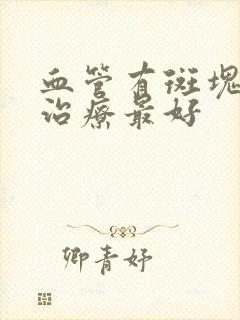 血管有斑塊
治療最好
卿青妤